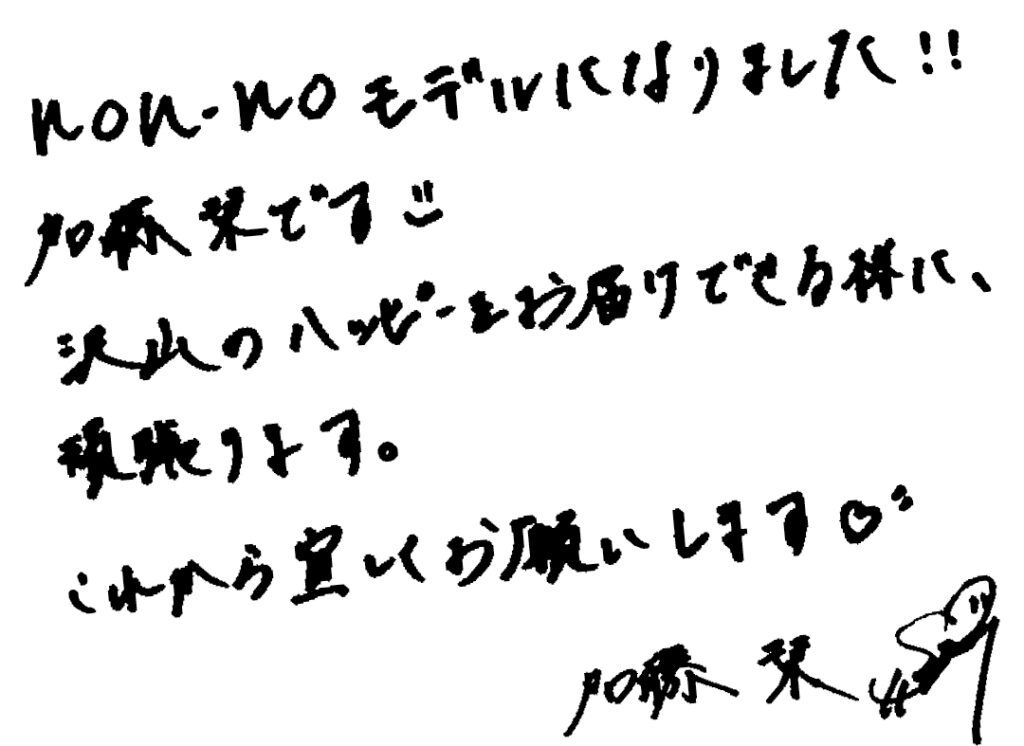 non-noモデルになりました!!
加藤栞です
沢山のハッピーをお届けできる様に、
頑張ります。
これから宜しくお願いします♡
加藤 栞